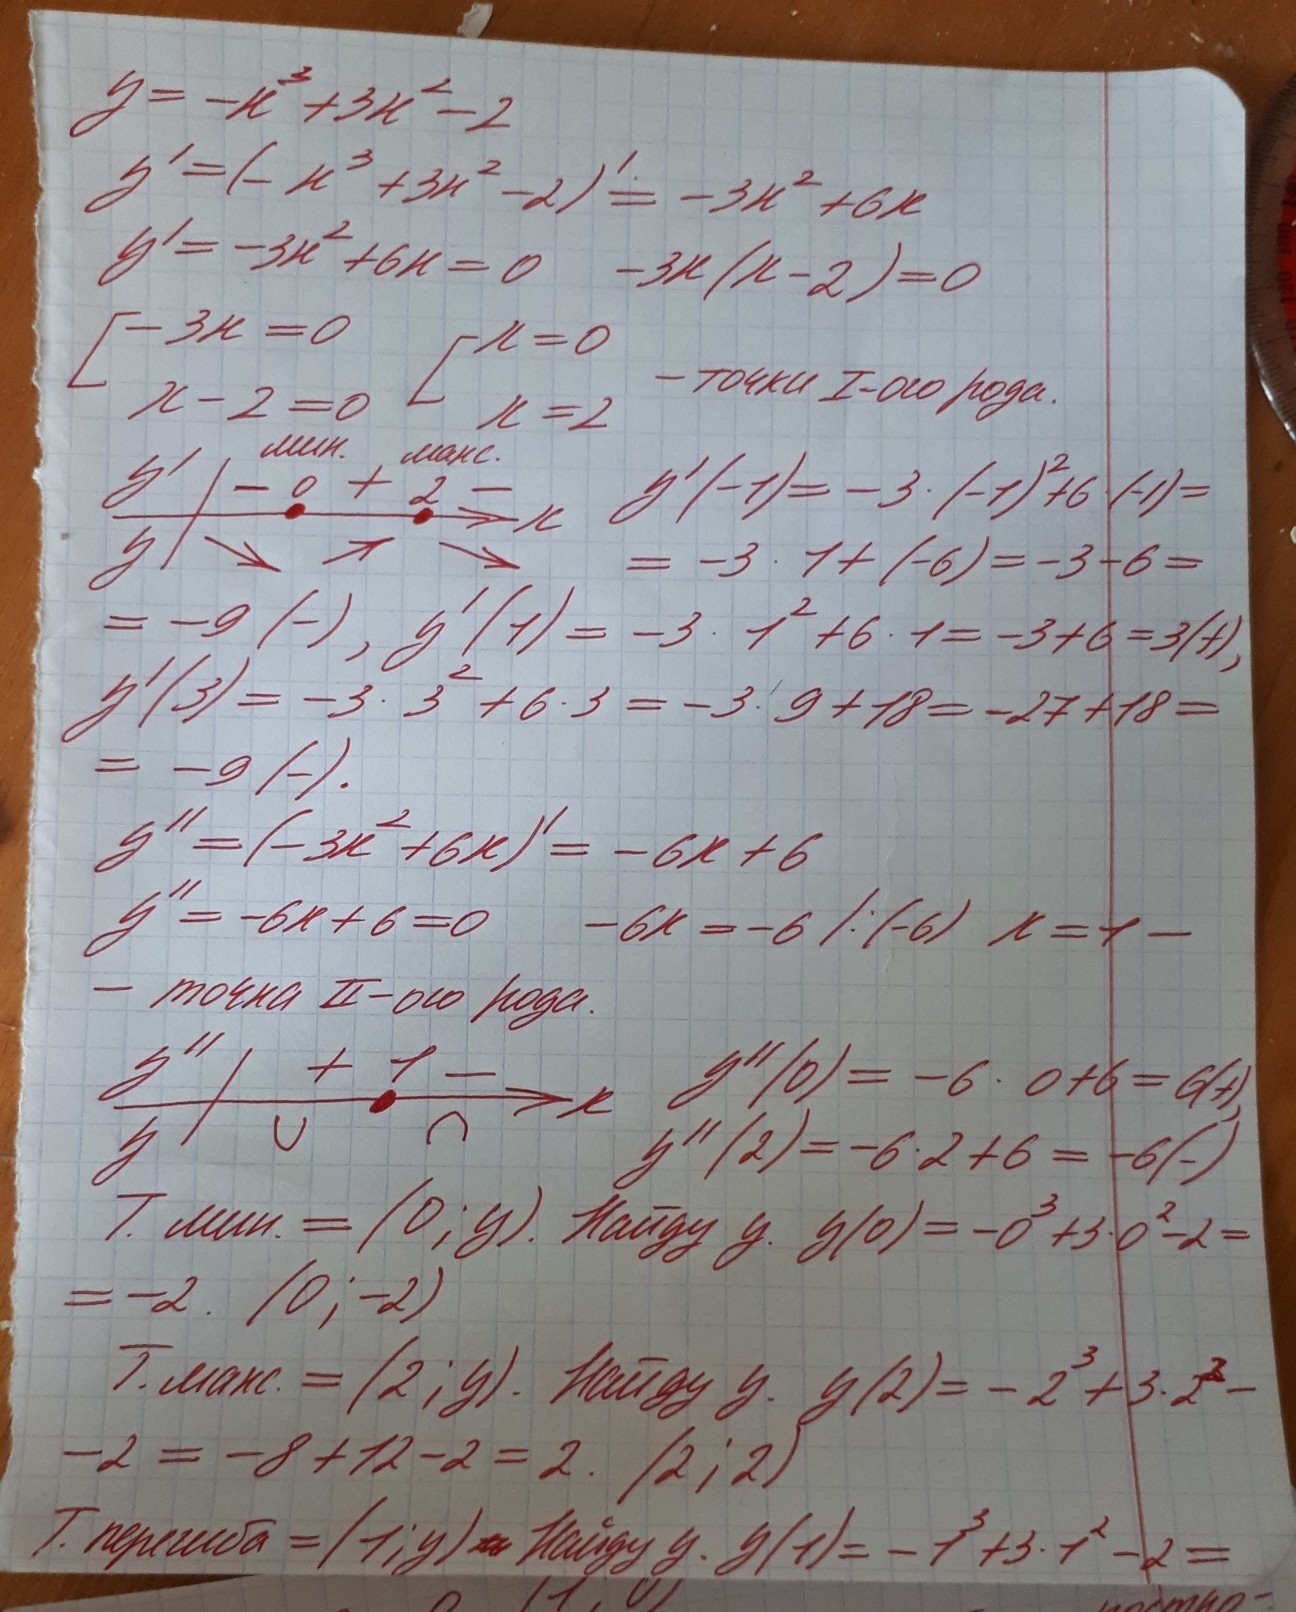 y = -x³ + 3x² - 2
y' = (-x³ + 3x² - 2)' = -3x² + 6x
y' = -3x² + 6x = 0 -3x(x - 2) = 0
[ -3x = 0 [ x = 0
x - 2 = 0 x = 2 - точки I-ого рода.
мин. макс.
y' - 0 + 2 - x y'(-1) = -3 · (-1)² + 6 · (-1) =
y = -3 · 1 + (-6) = -3 - 6 =
= -9 (-), y'(1) = -3 · 1² + 6 · 1 = -3 + 6 = 3(+),
y'(3) = -3 · 3² + 6 · 3 = -3 · 9 + 18 = -27 + 18 =
= -9 (-).
y'' = (-3x² + 6x)' = -6x + 6
y'' = -6x + 6 = 0 -6x = -6 |:(-6) x = 1 -
- точка II-ого рода.
y'' + 1 - x y''(0) = -6 · 0 + 6 = 6(+),
y ∪ ∩ y''(2) = -6 · 2 + 6 = -6(-)
Т. мин. = (0; y). Найду y. y(0) = -0³ + 3 · 0² - 2 =
= -2. (0; -2)
Т. макс. = (2; y). Найду y. y(2) = -2³ + 3 · 2² -
- 2 = -8 + 12 - 2 = 2. (2; 2)
Т. перегиба = (1; y) Найду y. y(1) = -1³ + 3 · 1² - 2 =